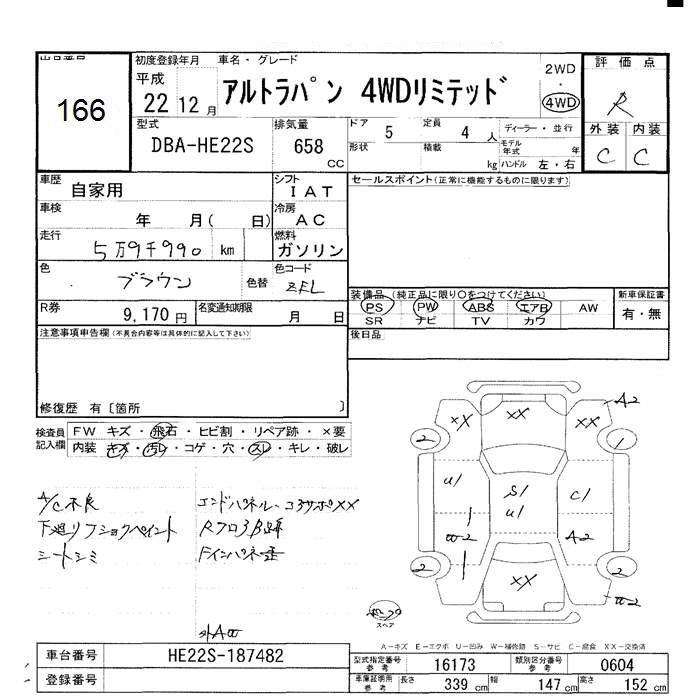 166
初度登録年月 車名・グレード
平成 22 12 月 アルトラパン 4WDリミテッド
2WD
・
4WD
評価点
R
外装 内装
C C
型式 排気量 ドア 5 定員 4 人 ディーラー・並行
DBA-HE22S 658 CC 形状 積載 kg モデル年式 年
ハンドル 左・右
車歴 自家用 シフト IAT セールスポイント(正常に機能するものに限ります)
車検 年 月( 日) 冷房 AC
走行 5万9千990 km 燃料 ガソリン
色 ブラウン 色替 色コード ZFL
R券 9,170円 名変通知期限 月 日
装備品(純正品に限り○をつけてください) 新車保証書
PS PW ABS エアB AW 有・無
SR ナビ TV カワ
注意事項申告欄(不具合内容等は具体的に記入して下さい) 後日品
修復歴 有〔箇所 〕
検査員記入欄 FW キズ・飛石・ヒビ割・リペア跡・×要
内装 キズ・汚レ・コゲ・穴・スレ・キレ・破レ
A/C不良 エンドパネル・コアサポXX
下廻リフショクペイント
シートシミ
XX XX XX A2
2 1
U1 S1 U1 C1
W2 A2
2 2
XX W2
スペア
A-キズ E-エクボ U-凹み W-補修跡 S-サビ C-腐食 XX-交換済
車台番号 HE22S-187482 型式指定番号 参考 16173 類別区分番号 参考 0604
登録番号 車庫証明用 参考 長さ 339 cm 幅 147 cm 高さ 152 cm